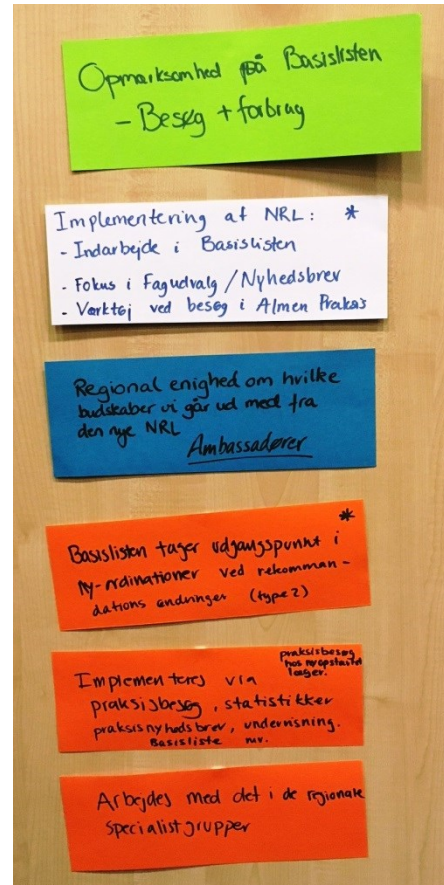 Opmærksomhed på Basislisten
- Besøg + forbrug
Implementering af NRL: *
- Indarbejde i Basislisten
- Fokus i Fagudvalg / Nyhedsbrev
- Værktøj ved besøg i Almen Praksis
Regional enighed om hvilke
budskaber vi går ud med fra
den nye NRL
Ambassadører
*
Basislisten tager udgangspunkt i
ny-ordinationer ved rekomman-
dations ændringer (type 2)
Implementeres via praksisbesøg
hos nyopstartet
læger.
praksisbesøg, statistikker
praksisnyhedsbrev, undervisning.
Basisliste mv.
Arbejdes med det i de regionale
specialistgrupper